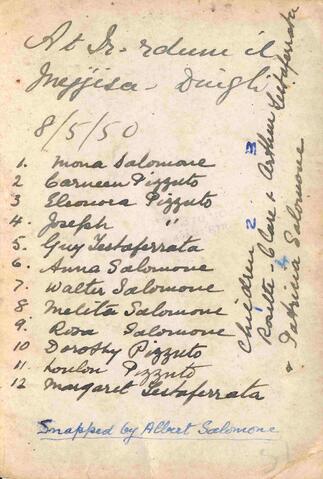 At Ir-rdum il
Mejjisa - Dingli
8/5/50
1. Mona Salomone
2 Carmeen Pizzuto
3 Eleonora Pizzuto
4. Joseph "
5. Guy Testaferrata
6. Anna Salomone
7. Walter Salomone
8 Melita Salomone
9. Rosa Salomone
10 Dorothy Pizzuto
11. Loulou Pizzuto
12 Margaret Testaferrata
Snapped by Albert Salomone
Children 2 3
Rosette - Clare & Arthur Testaferrata
4
& Patrina Salomone
51